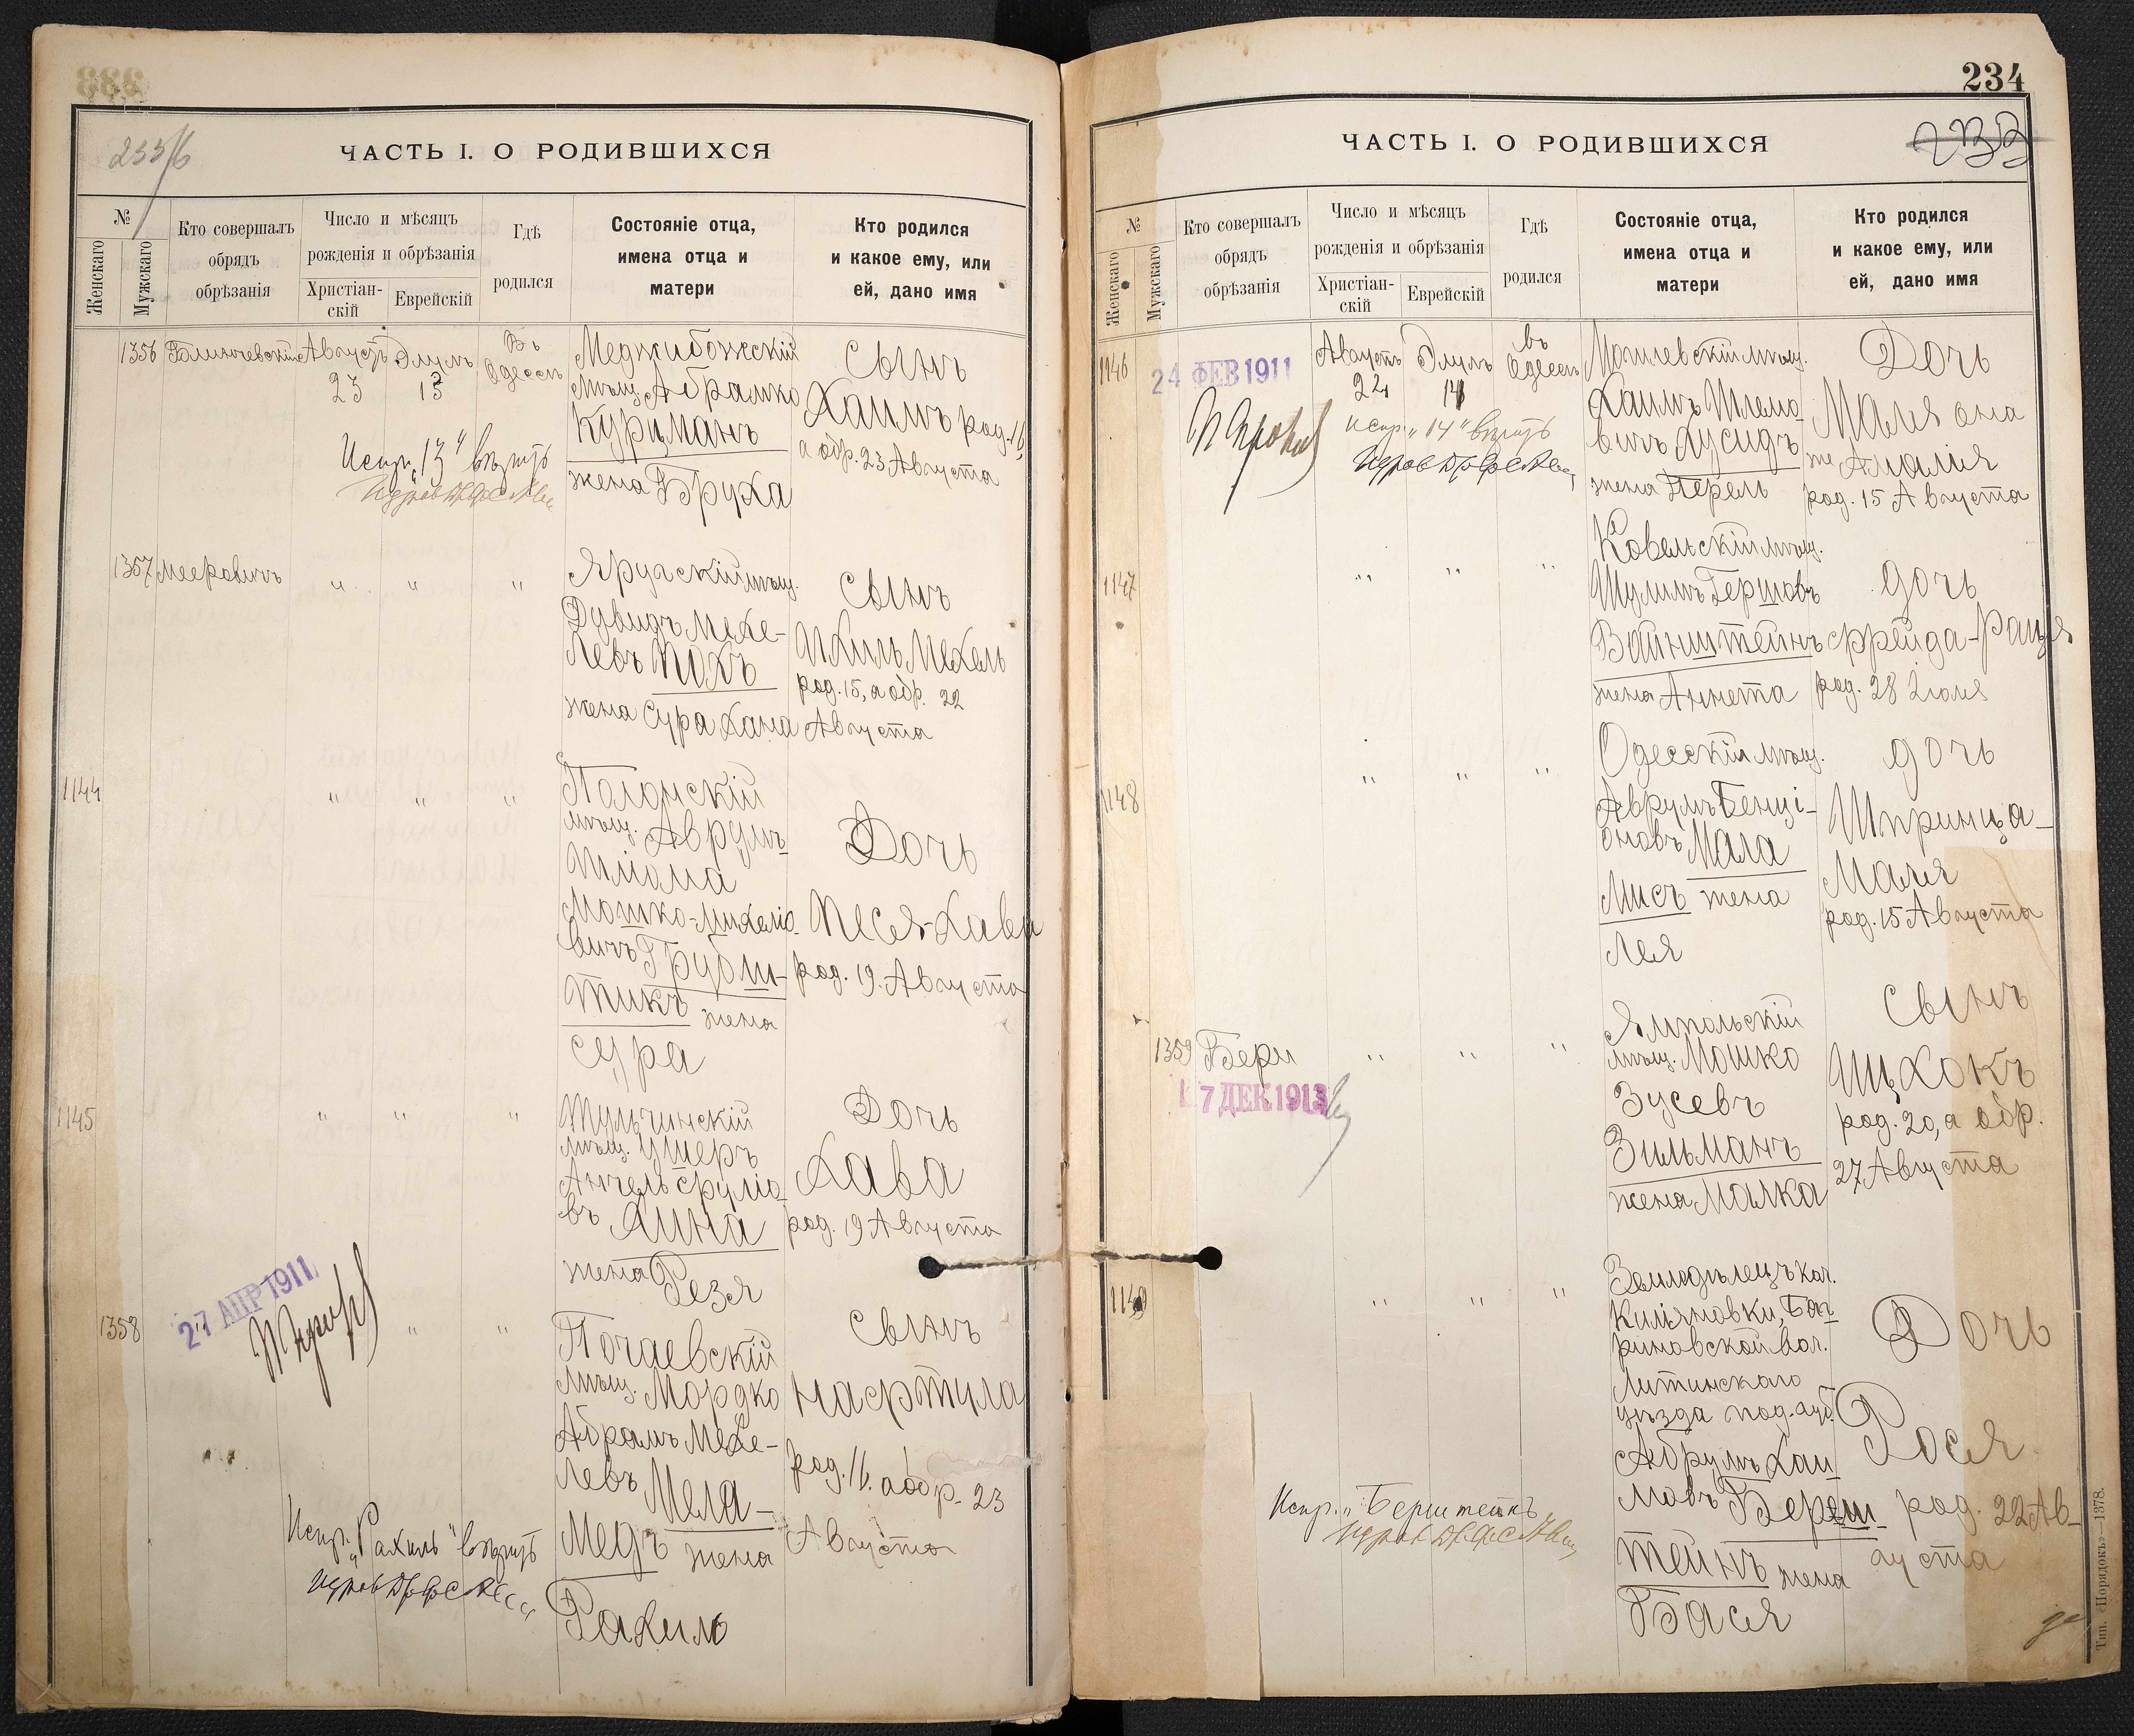 233/б
ЧАСТЬ I. О РОДИВШИХСЯ
№
Женскаго
Мужскаго
Кто совершалъ
обрядъ
обрѣзанія
Число и мѣсяцъ
рожденія и обрѣзанія
Христіан-
скій
Еврейскій
Гдѣ
родился
Состояніе отца,
имена отца и
матери
Кто родился
и какое ему, или
ей, дано имя
1356
Августъ
23
Элулъ
13
Въ
Одессѣ
Меджибожскій
мѣщ. Абрамко
Курцманъ
жена Бруха
Сынъ
Хаимъ род. 16,
а обр. 23 Августа
Испр. „13" вѣрить
1357
Мееровичъ
" " "
Яругскій мѣщ.
Дувидъ Мехе-
левъ Похъ
жена Сура Хана
Сынъ
Ихиль Мехель
род. 15, а обр. 22
Августа
1144
" " "
Полонскій
мѣщ. Аврумъ-
Шліома
Мошко-Михеліо-
вичъ Грубш-
тикъ жена
Сура
Дочь
Песя-Хава
род. 19 Августа
1145
" " "
Тульчинскій
мѣщ. Ушеръ
Анчель Сруліо-
въ
жена Резя
Дочь
Хава
род. 19 Августа
1358
27 АПР 1911
" "
Почаевскій
мѣщ. Мордко
Абрамъ Мехе-
левъ Мела-
медъ жена
Рахиль
Сынъ
Нафтула
род. 16. а обр. 23
Августа
Испр. „Рахиль" вѣрить
234
ЧАСТЬ I. О РОДИВШИХСЯ
233
№
Женскаго
Мужскаго
Кто совершалъ
обрядъ
обрѣзанія
Число и мѣсяцъ
рожденія и обрѣзанія
Христіан-
скій
Еврейскій
Гдѣ
родился
Состояніе отца,
имена отца и
матери
Кто родился
и какое ему, или
ей, дано имя
1146
24 ФЕВ 1911
Августъ
24
Элулъ
14
въ
Одессѣ
Могилевскій мѣщ.
Хаимъ Шлемо-
вичъ Хусидъ
жена Перель
Дочь
Маля она
же Амалия
род. 15 Августа
испр. „14" вѣрить
1147
" " "
Ковельскій мѣщ.
Шулимъ Гершовъ
Вайнштейнъ
жена Аннета
дочь
Фрейда-Раця
род. 28 Іюля
1148
" " "
Одесскій мѣщ.
Аврумъ Бенці-
оновъ Мала
Мисъ жена
Лея
дочь
Шпринца-
Маля
род. 15 Августа
1359
Бери
17 ДЕК 1913
" " "
Ямпольскій
мѣщ. Мошко
Зусевъ
Зильманъ
жена Малка
Сынъ
Ицхокъ
род. 20, а обр.
27 Августа
1149
" " "
Земледѣлецъ кол.
Киліяновки, Баг-
риновской вол.
Литинскаго
уѣзда под. губ.
Абрумъ Хаи
мовъ Береш-
тейнъ жена
Бася
Дочь
Рося
род. 22 Ав-
густа
Испр. „Берштейнъ
Тип. «Порядокъ»—1378.